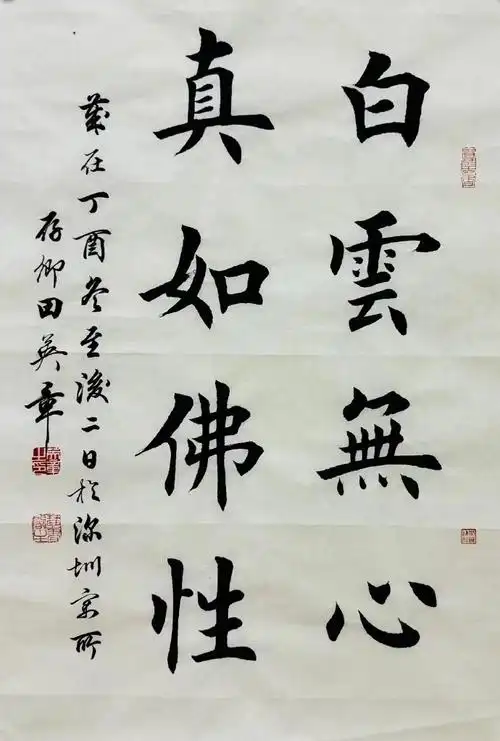 白雲無心
真如佛性
歲在丁酉冬至後二日於深圳寓所
存卿田英章